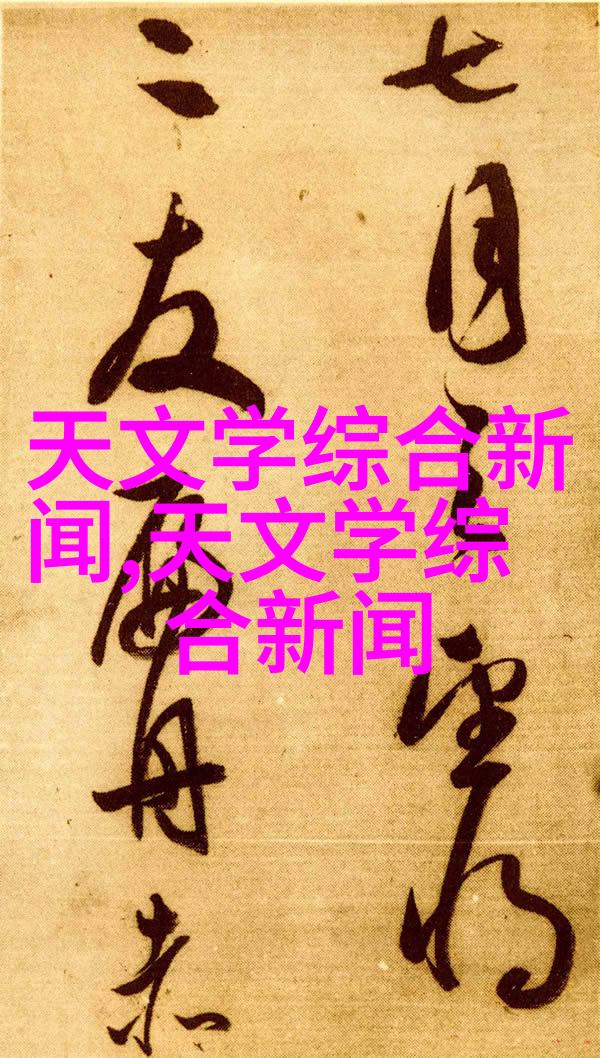 七月之望将
二友舟赤
天文学综合新
闻,天文学综
合新闻